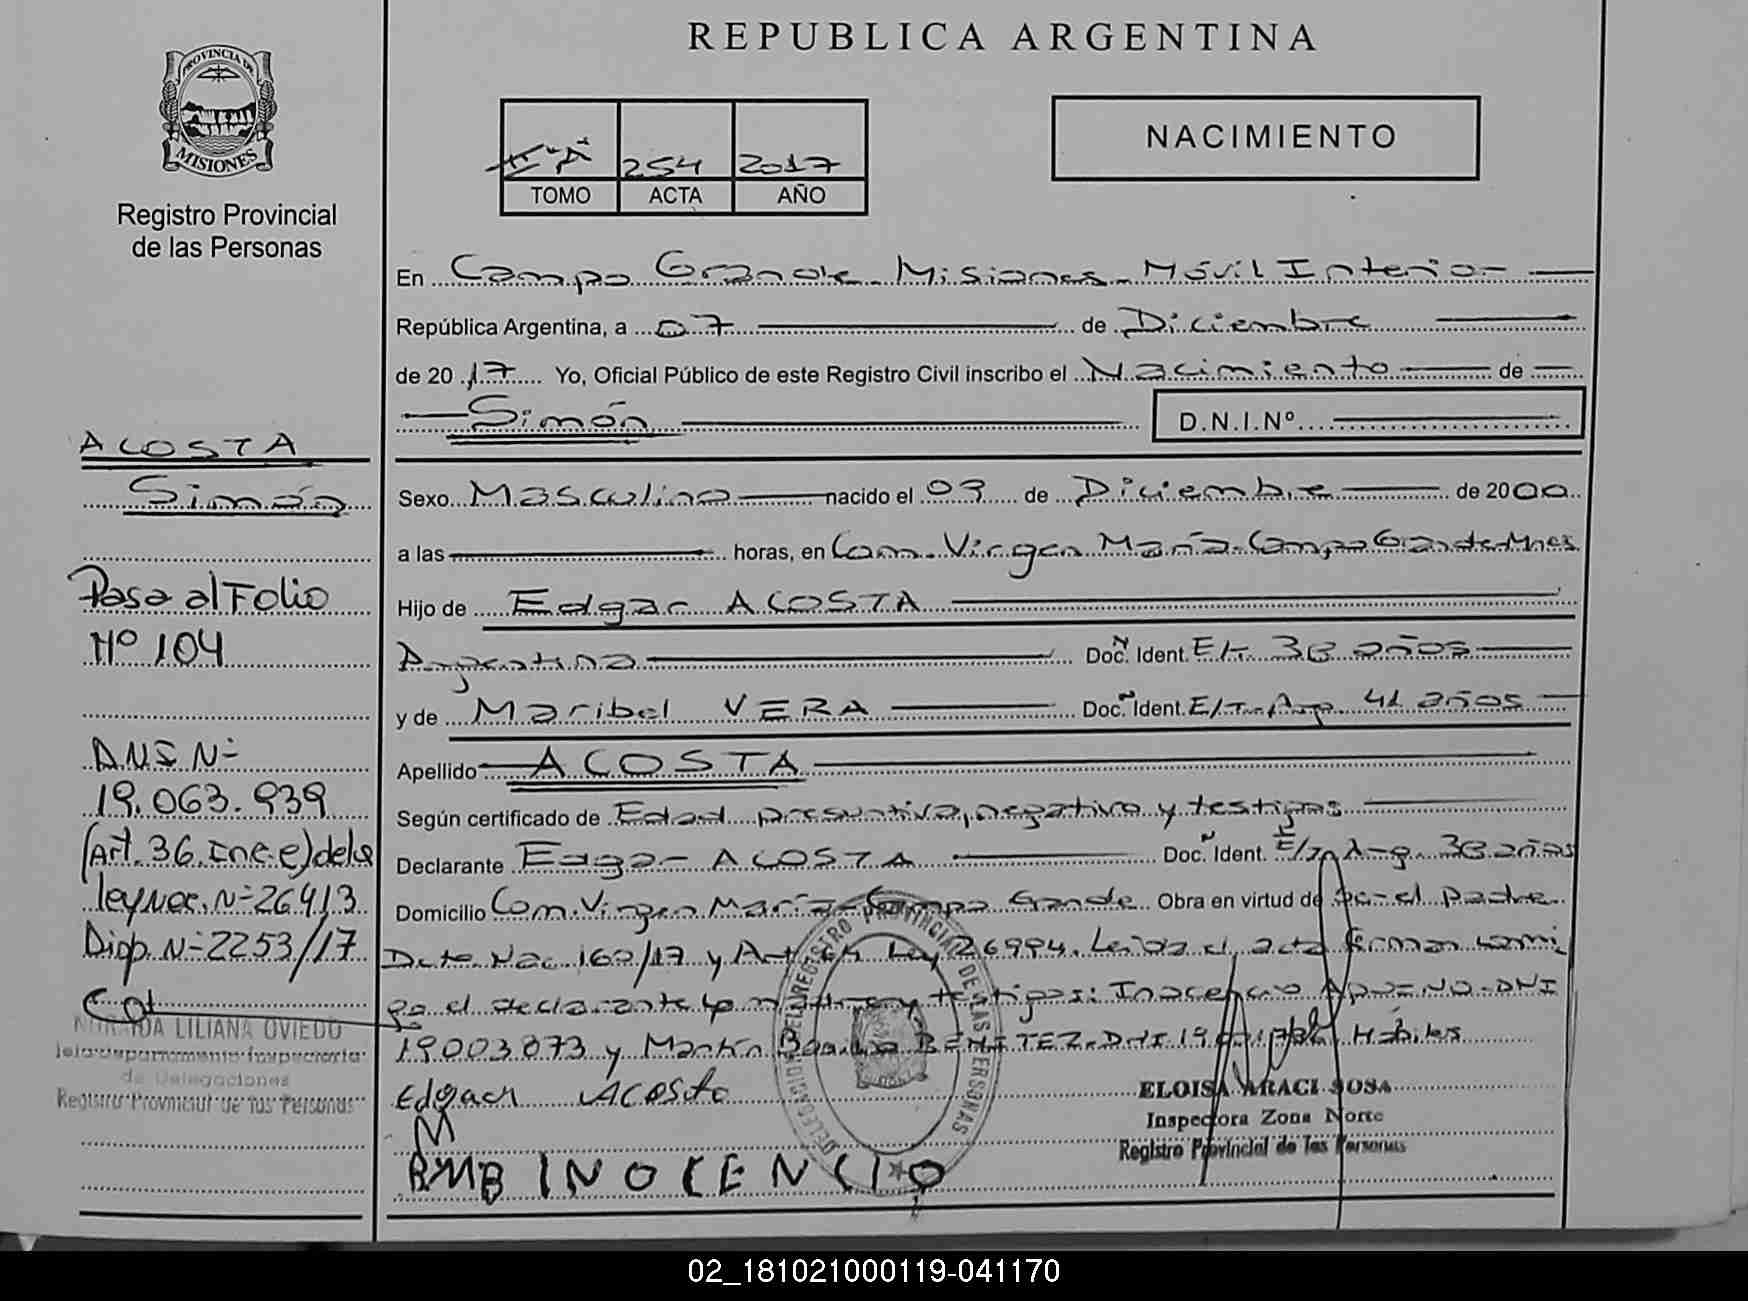 REPUBLICA ARGENTINA
PROVINCIA DE
MISIONES
Registro Provincial
de las Personas
254 2017
TOMO ACTA AÑO
NACIMIENTO
En Campo Grande - Misiones - Móvil Interior
República Argentina, a 07 de Diciembre
de 20 17 Yo, Oficial Público de este Registro Civil inscribo el Nacimiento de
Simón D.N.I.Nº
Sexo Masculino nacido el 09 de Diciembre de 2000
a las horas, en Com. Virgen María - Campo Grande - Mnes
Hijo de Edgar ACOSTA
Argentina Doc. Ident. E/T. 38 años
y de Maribel VERA Doc. Ident. E/T. Arg. 41 años
Apellido ACOSTA
Según certificado de Edad presuntiva, negativo y testigos
Declarante Edgar ACOSTA Doc. Ident. E/T Arg. 38 años
Domicilio Com. Virgen María - Campo Grande Obra en virtud de Ser el Padre
Dcto. Nac. 160/17 y Art. 64 Ley 26994. Leída el acta firman conmi
go el declarante, y testigos: Inocencio DNI
19003073 y Martín BENITEZ - DNI 19 Hábiles
Edgar Acosta
M
BMB INOCENCIO
ACOSTA
Simón
Pasa al Folio
Nº 104
D.N.I. Nº
19.063.939
(Art. 36 Inc. e) de la
ley Nac. Nº 26413
Disp. Nº 2253/17
LILIANA OVIEDO
de Delegaciones
Registro Provincial de las Personas
DELEGACION DEL REGISTRO PROVINCIAL DE LAS PERSONAS
ELOISA ARACI SOSA
Inspectora Zona Norte
Registro Provincial de las Personas
02_181021000119-041170